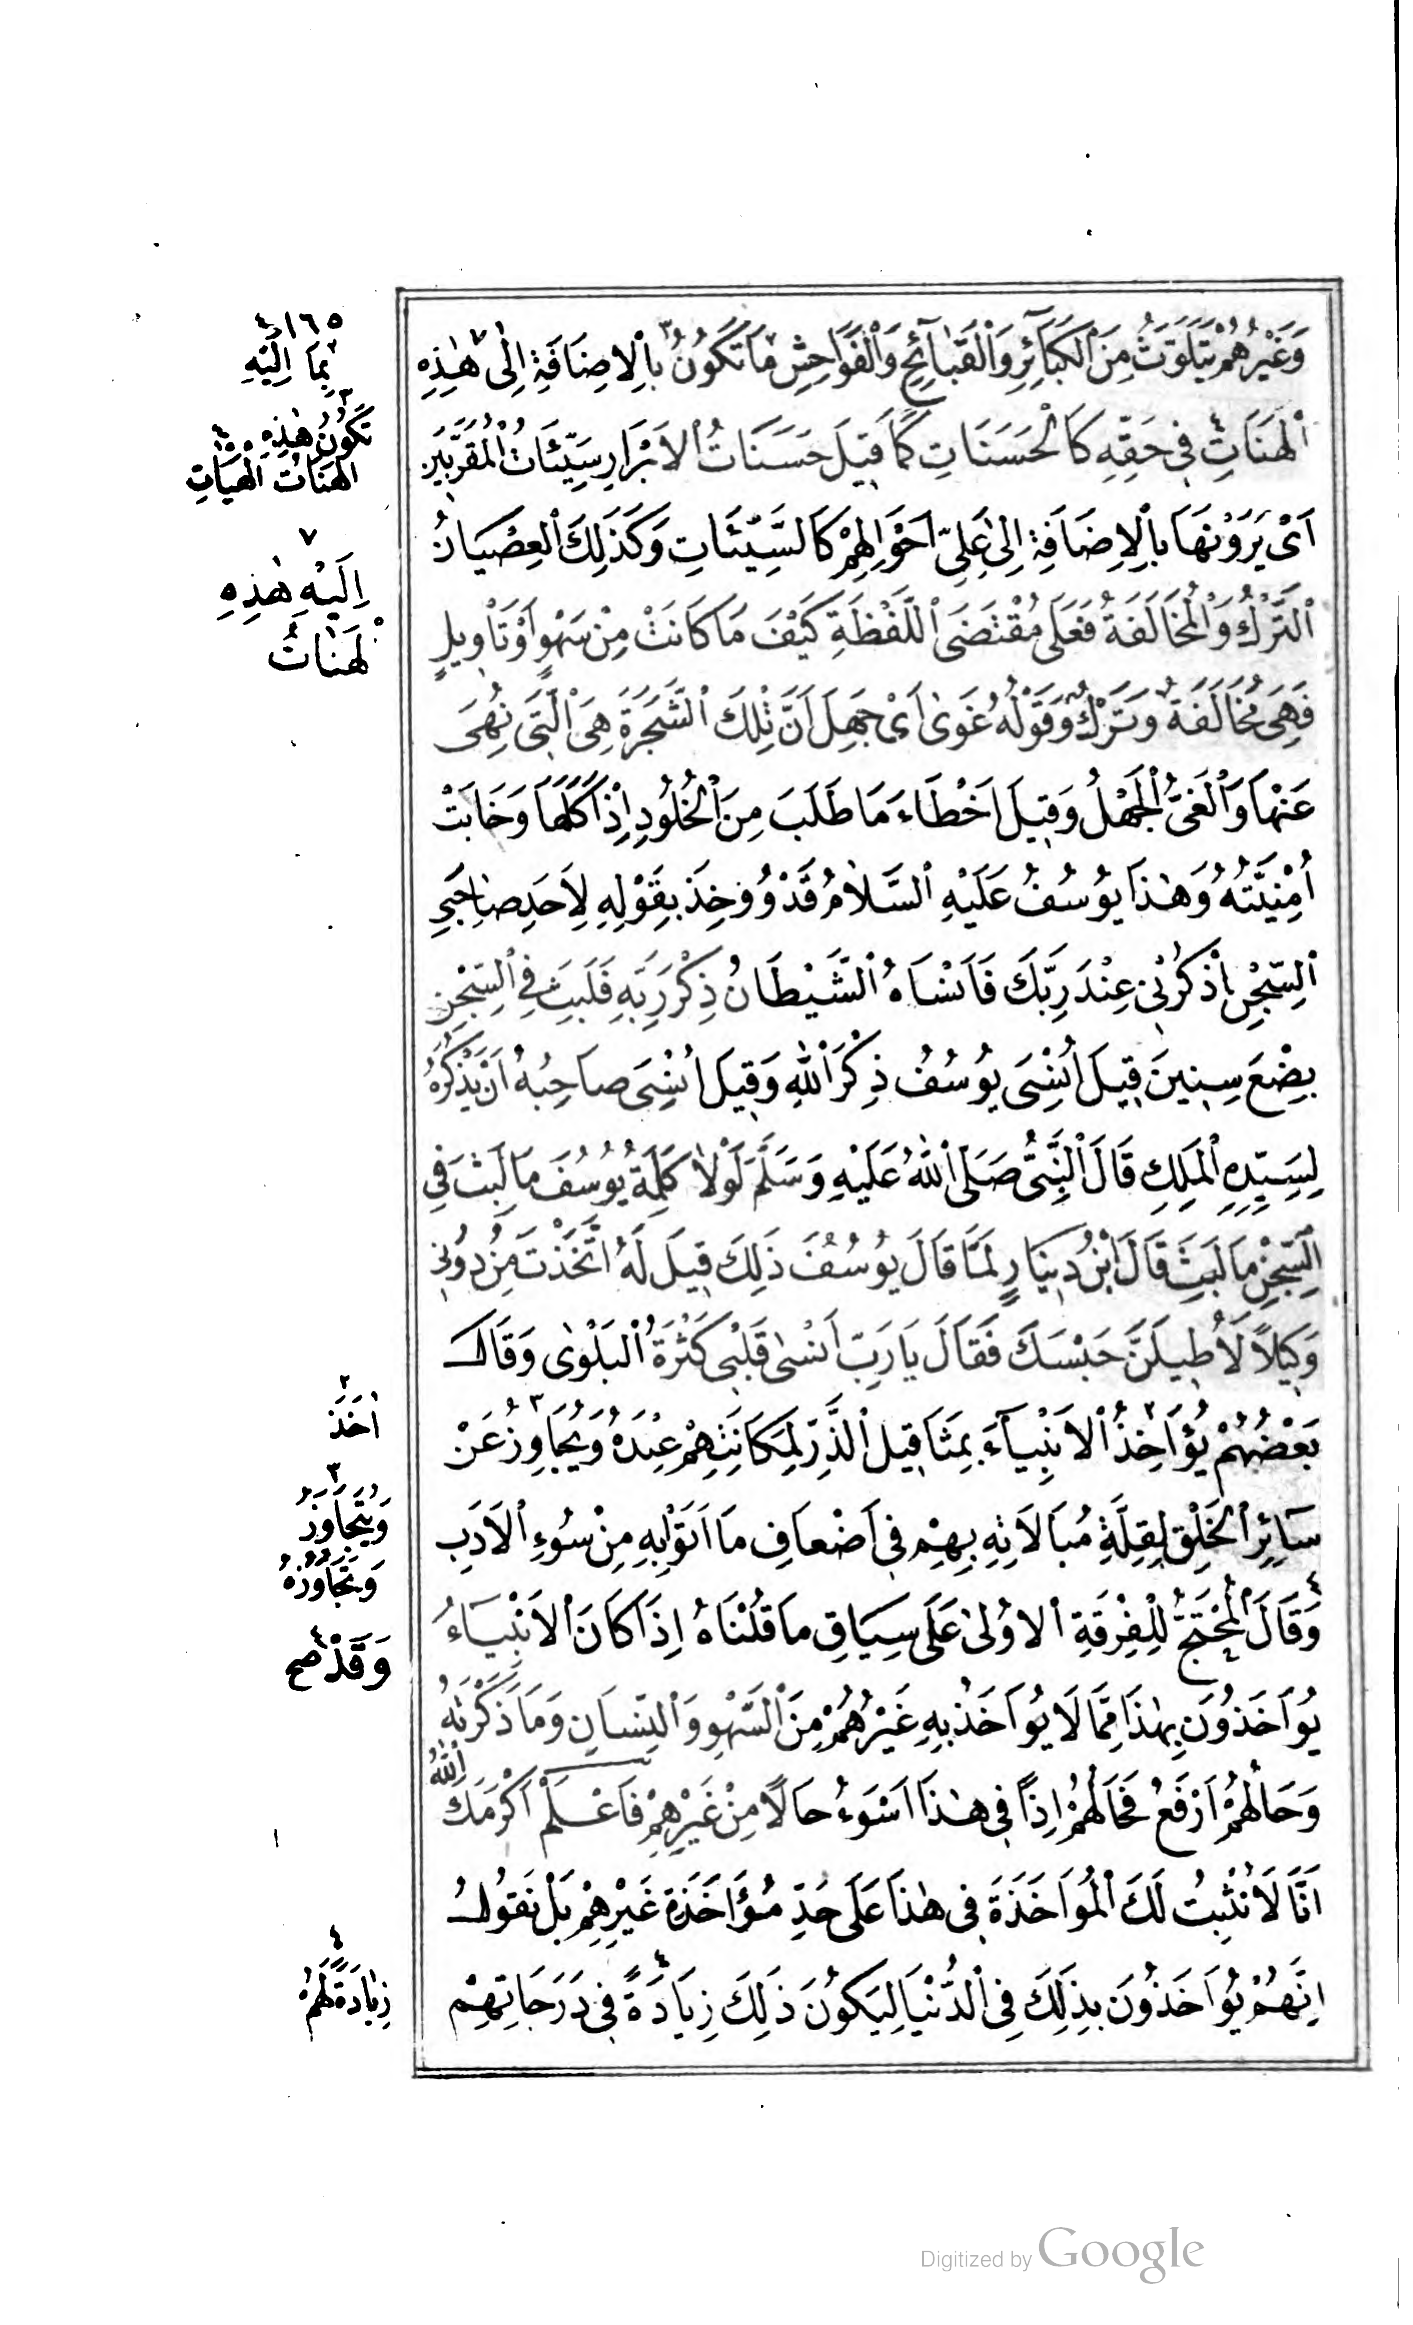 وَغَيْرُهُمْ يَتَلَوَّثُ مِنَ الْكَبَآئِرِ وَالْقَبَآئِحِ وَالْفَوَاحِشِ مَا تَكُونُ بِالْاِضَافَةِ اِلٰى هٰذِهِ
الْهَنَاتِ فِى حَقِّهِ كَالْحَسَنَاتِ كَمَا قِيلَ حَسَنَاتُ الْاَبْرَارِ سَيِّئَاتُ الْمُقَرَّبِينَ
اَىْ يَرَوْنَهَا بِالْاِضَافَةِ اِلٰى عَلِىِّ اَحْوَالِهِمْ كَالسَّيِّئَاتِ وَكَذَلِكَ الْعِصْيَانُ
التَّرْكُ وَالْمُخَالَفَةُ فَعَلَى مُقْتَضَى اللَّفْظَةِ كَيْفَ مَا كَانَتْ مِنْ سَهْوٍ اَوْ تَاْوِيلٍ
فَهِىَ مُخَالَفَةٌ وَتَرْكٌ وَقَوْلُهُ غَوٰى اَىْ جَهِلَ اَنَّ تِلْكَ الشَّجَرَةَ هِىَ الَّتِى نُهِىَ
عَنْهَا وَالْغَىُّ الْجَهْلُ وَقِيلَ اَخْطَاءَ مَا طَلَبَ مِنَ الْخُلُودِ اِذْ اَكَلَهَا وَخَابَتْ
اُمْنِيَّتُهُ وَهٰذَا يُوسُفُ عَلَيْهِ السَّلَامُ قَدْ وُوخِذَ بِقَوْلِهِ لِاَحَدِ صَاحِبَىِ
السِّجْنِ اُذْكُرْنِى عِنْدَ رَبِّكَ فَاَنْسَاهُ الشَّيْطَانُ ذِكْرَ رَبِّهِ فَلَبِثَ فِى السِّجْنِ
بِضْعَ سِنِينَ قِيلَ اُنْسِىَ يُوسُفُ ذِكْرَ اللّٰهِ وَقِيلَ اُنْسِىَ صَاحِبُهُ اَنْ يَذْكُرَهُ
لِسَيِّدِهِ الْمَلِكِ قَالَ النَّبِىُّ صَلَى اللّٰهُ عَلَيْهِ وَسَلَّمَ لَوْلَا كَلِمَةُ يُوسُفَ مَا لَبِثَ فِى
السِّجْنِ مَا لَبِثَ قَالَ ابْنُ دِينَارٍ لَمَّا قَالَ يُوسُفُ ذَلِكَ قِيلَ لَهُ اتَّخَذْتَ مِنْ دُونِى
وَكِيلًا لَاُطِيلَنَّ حَبْسَكَ فَقَالَ يَا رَبِّ اَنْسٰى قَلْبِى كَثْرَةُ الْبَلْوٰى وَقَالَ
بَعْضُهُمْ يُؤَاخِذُ الْاَنْبِيَآءَ بِمَثَاقِيلِ الذَّرِّ لِمَكَانَتِهِمْ عِنْدَهُ وَيُجَاوِزُ عَنْ
سَآئِرِ الْخَلْقِ لِقِلَّةِ مُبَالَاتِهِ بِهِمْ فِى اَضْعَافِ مَا اَتَوْا بِهِ مِنْ سُوءِ الْاَدَبِ
وَقَالَ الْمُحْتَجُّ لِلْفِرْقَةِ الْاُولٰى عَلَى سِيَاقِ مَا قُلْنَاهُ اِذَا كَانَ الْاَنْبِيَآءُ
يُوَاخَذُونَ بِهٰذَا مِمَّا لَا يُوَاخَذُ بِهِ غَيْرُهُمْ مِنَ السَّهْوِ وَالنِّسْيَانِ وَمَا ذَكَرْتَهُ
وَحَالُهُمْ اَرْفَعُ فَحَالُهُمْ اِذًا فِى هٰذَا اَسْوَءُ حَالًا مِنْ غَيْرِهِمْ فَاعْلَمْ اَكْرَمَكَ اللّٰهُ
اَنَّا لَا نُثْبِتُ لَكَ الْمُوَاخَذَةَ فِى هٰذَا عَلَى حَدِّ مُؤَاخَذَةِ غَيْرِهِمْ بَلْ نَقُولُ
اِنَّهُمْ يُوَاخَذُونَ بِذَلِكَ فِى الدُّنْيَا لِيَكُونَ ذَلِكَ زِيَادَةً فِى دَرَجَاتِهِمْ
بِمَا اِلَيْهِ
تَكُونُ هٰذِهِ
الْهَنَاتُ الْهَيْاٰتِ
٧
اِلَيْهِ هٰذِهِ
الْهَنَاتُ
٢
اَخَذَ
٣
وَيَتَجَاوَزُ
وَتَجَاوُزُهُ
وَقَدْ صح
٤
زِيَادَةً لَهُمْ
Digitized by Google